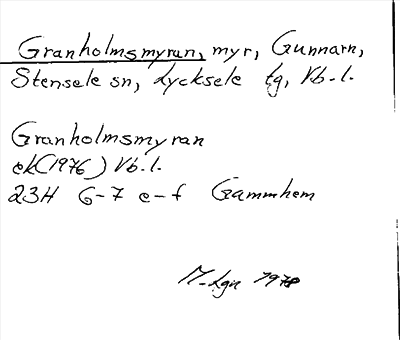 Granholmsmyran, myr, Gunnarn,
Stensele sn, Lycksele tg, Vb.l.
Granholmsmyran
ek (1976) Vb.l.
23H 6-7 e-f Gammhem
M-Lgn 1978